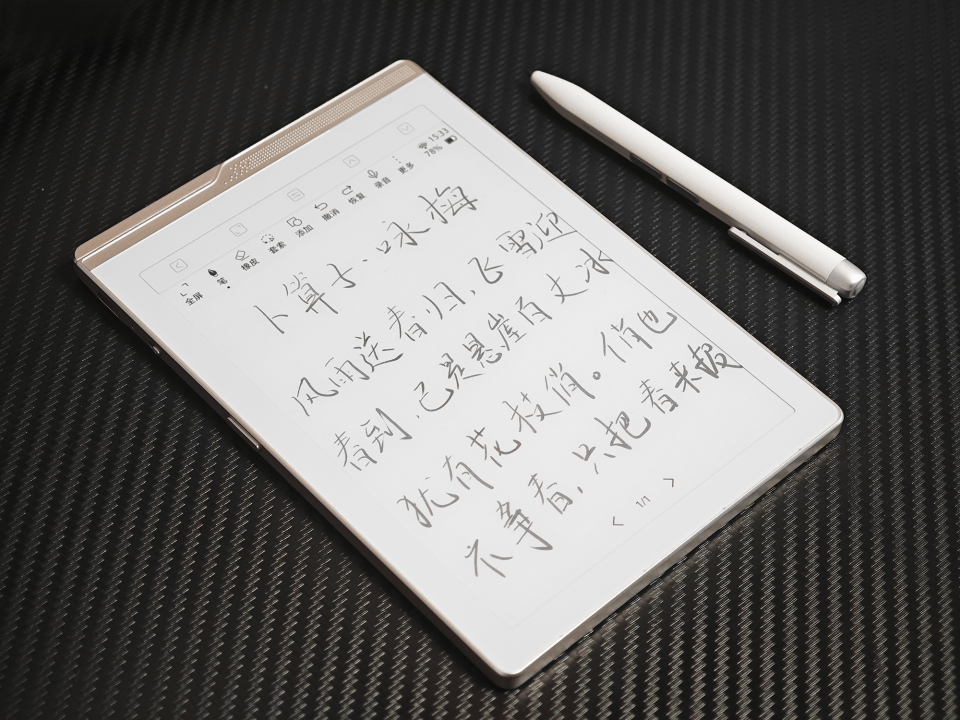 15:33
78%
全屏 笔 橡皮 套索 添加 撤消 恢复 录音 更多
卜算子·咏梅
风雨送春归，飞雪迎
春到，已是悬崖百丈冰
犹有花枝俏。俏也
不争春，只把春来报
< 1/1 >